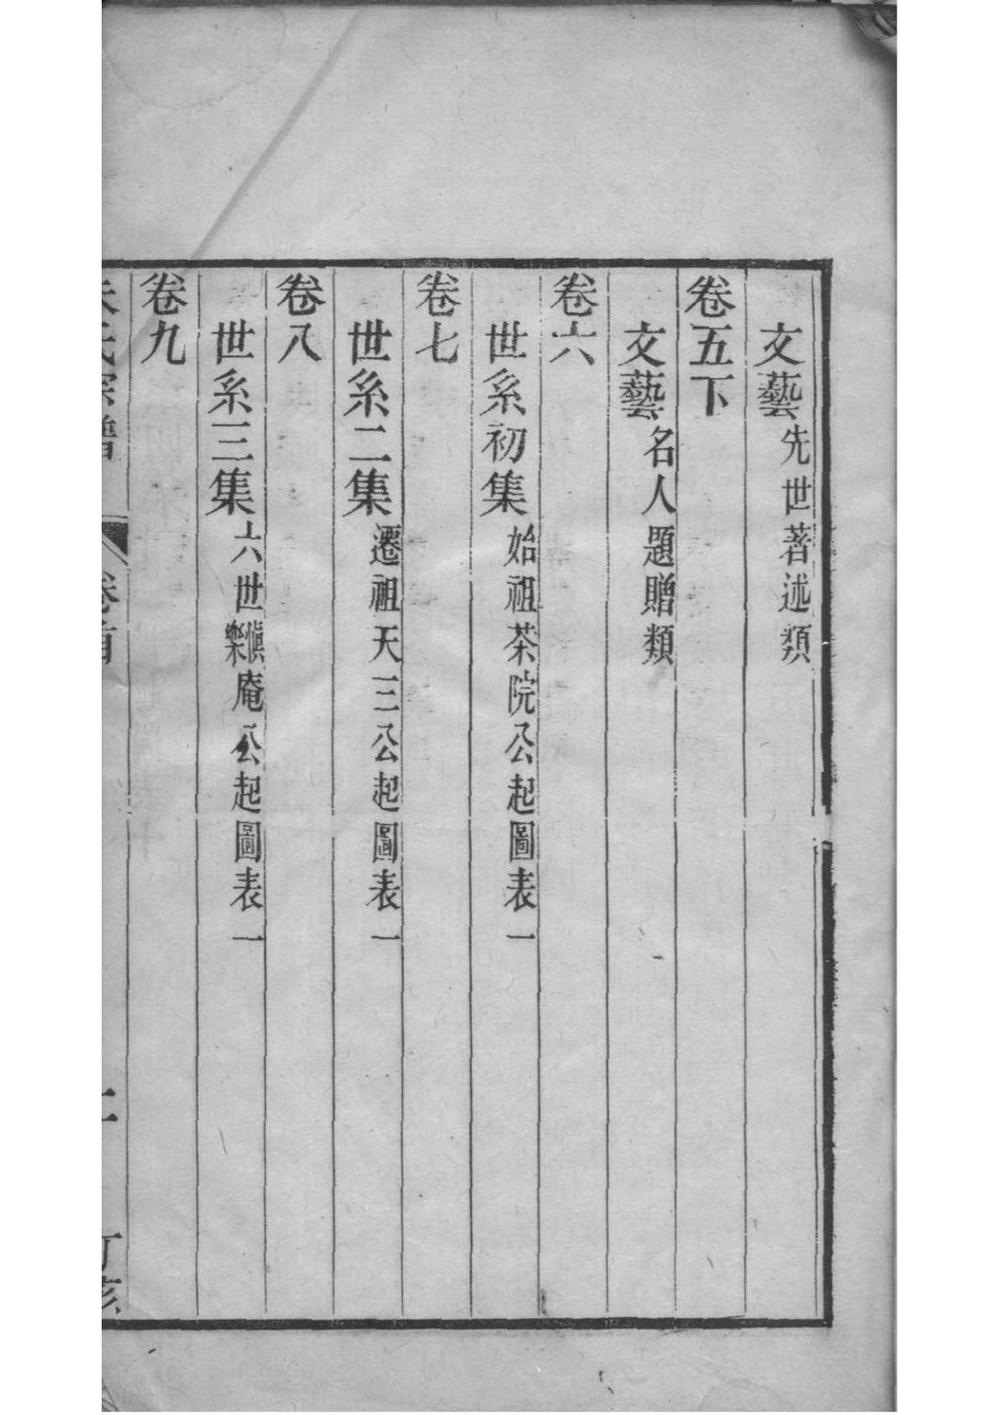 文藝先世著述類
卷五下
文藝名人題贈類
卷六
世系初集始祖茶院公起圖表一
卷七
世系二集遷祖天三公起圖表一
卷八
世系三集六世樂愼庵公起圖表一
卷九
氏宗譜 卷首 二 丁亥